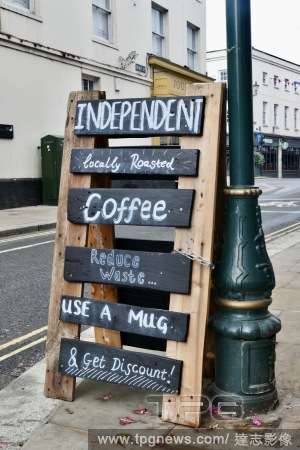 INDEPENDENT
Locally Roasted
Coffee
Reduce
Waste...
USE A MUG
& Get Discount!
TPG
www.tpgnews.com/ 達志影像